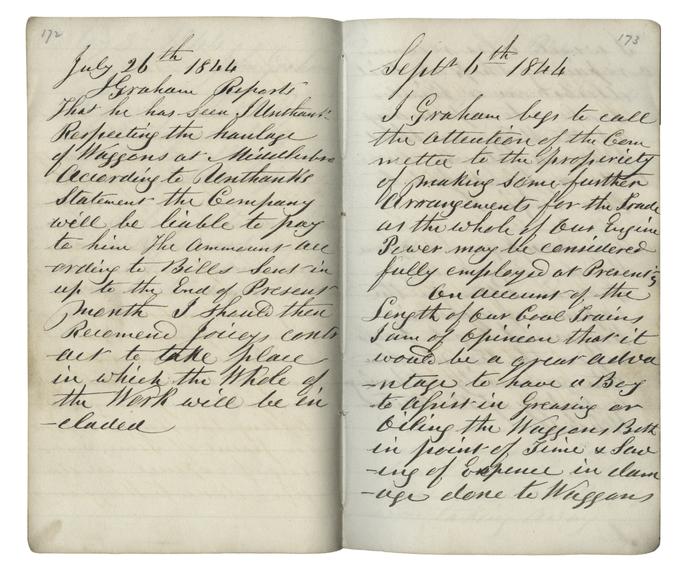 172
July 26th 1844
J Graham Reports
That he has Seen J Unthank
Respecting the haulage
of Waggons at Middlesbro
According to Unthanks
Statement the Company
will be liable to pay
to him the ammount acc
ording to Bills Sent in
up to the End of Present
Month I Should then
Recomend Joiceys contr
-act to take place
in which the Whole of
the Work will be in
-cluded
173
Sept 6th 1844
J Graham begs to call
the attention of the Com
mettee to the propriety
of making some further
Arrangements for the Trade
as the whole of Our Engine
Power may be considered
fully employed at Present
On account of the
Length of Our Coal Trains
I am of Opinion that it
would be a great adva
-ntage to have a Boy
to Assist in Greasing or
Oiling the Waggons Both
in point of Time & Sav
-ing of Expence in dam
-age done to Waggons